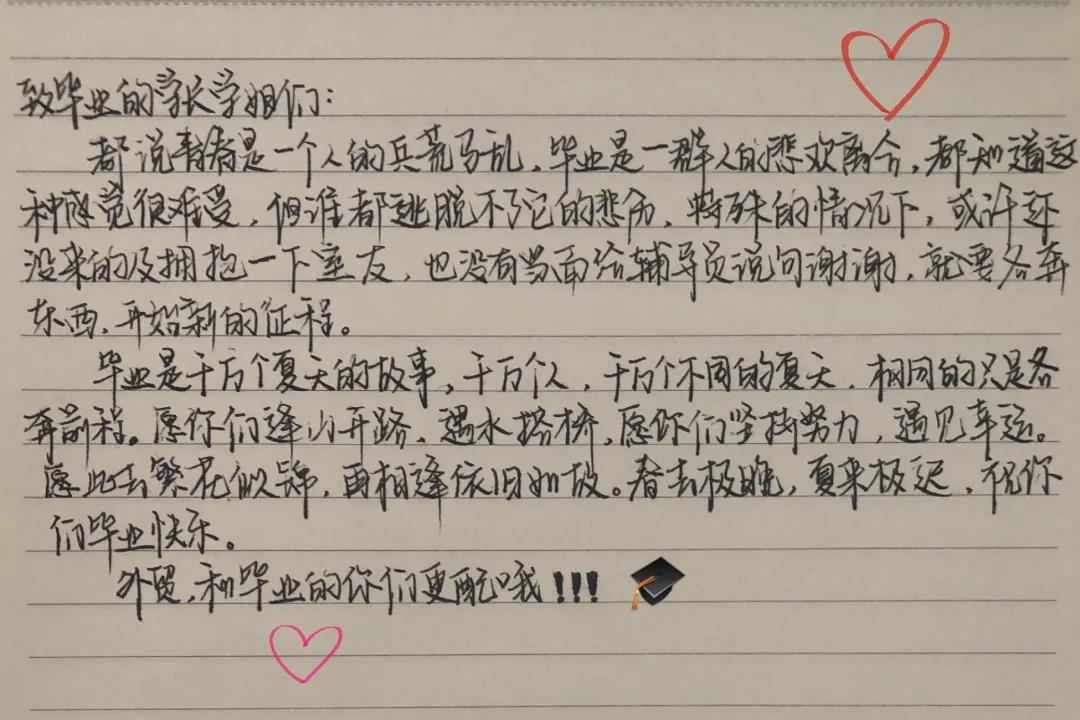 致毕业的学长学姐们：
都说青春是一个人的兵荒马乱，毕业是一群人的悲欢离合，都知道这
种感觉很难受，但谁都逃脱不了它的悲伤，特殊的情况下，或许还
没来的及拥抱一下室友，也没有当面给辅导员说句谢谢，就要各奔
东西，开始新的征程。
毕业是千万个夏天的故事，千万个人，千万个不同的夏天，相同的只是各
奔前程。愿你们逢山开路，遇水搭桥，愿你们坚持努力，遇见幸运。
愿此去繁花似锦，再相逢依旧如故。春去极晚，夏来极迟，祝你
们毕业快乐。
外贸，和毕业的你们更配哦！！！